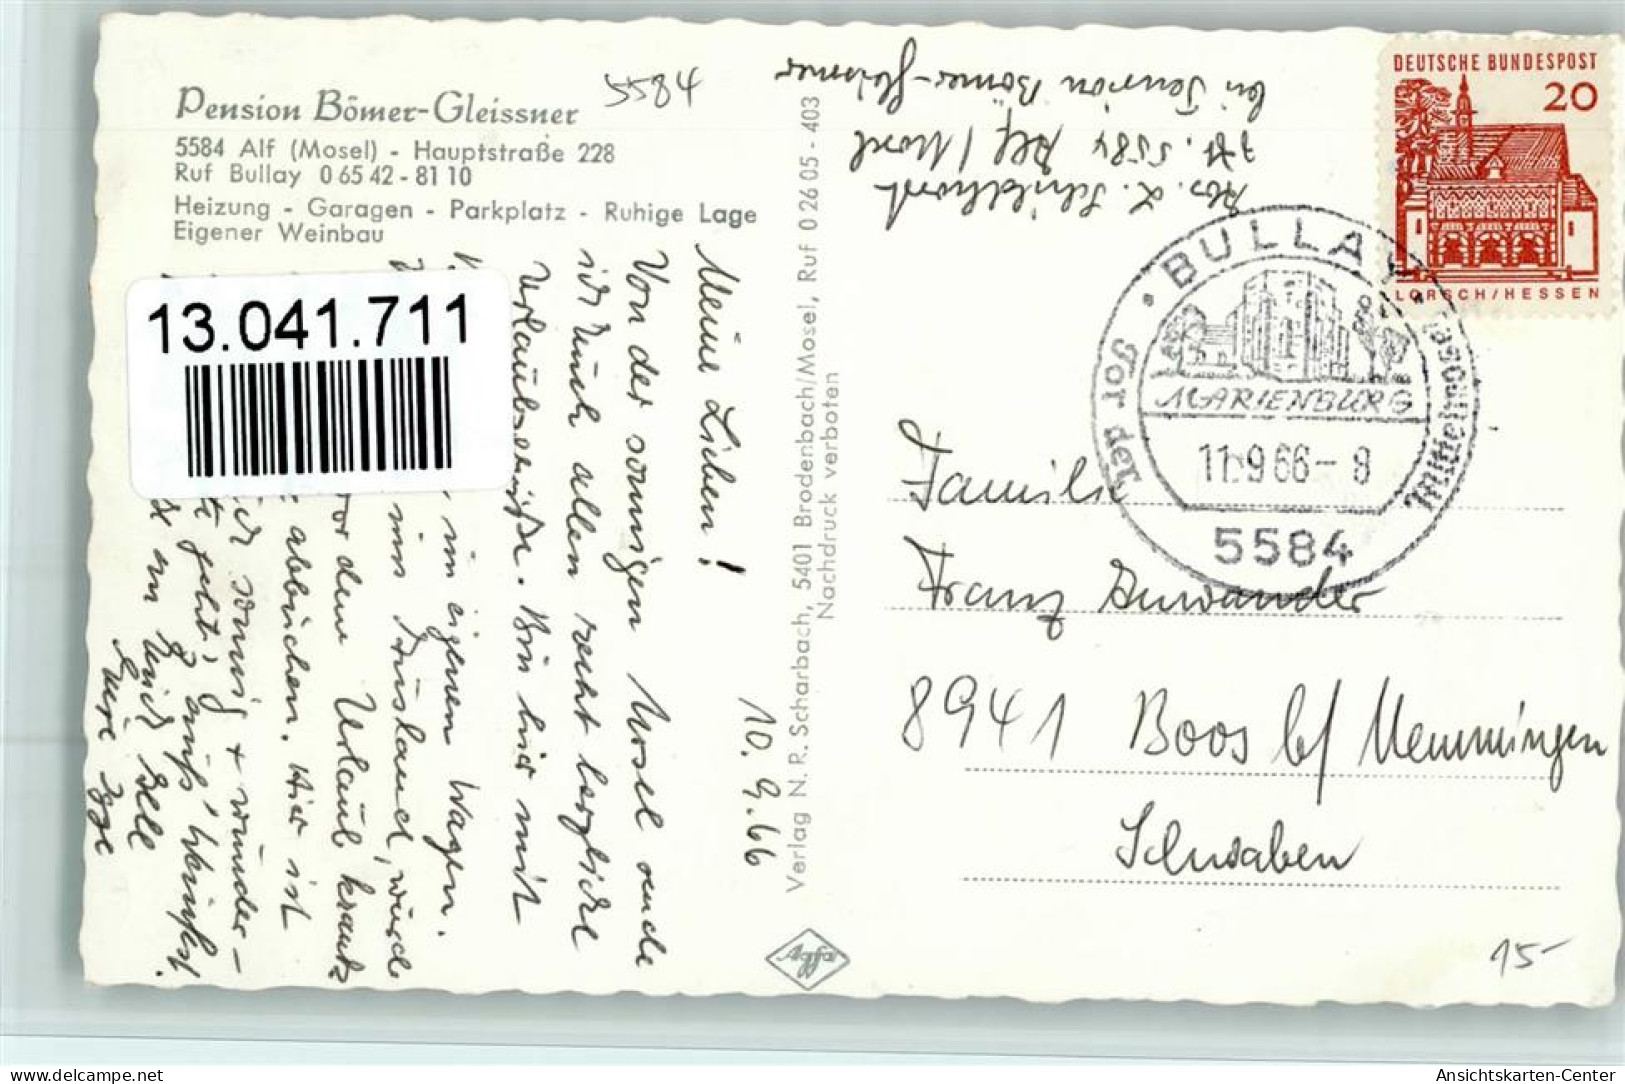 Pension Bömer-Gleissner
5584 Alf (Mosel) - Hauptstraße 228
Ruf Bullay 0 65 42 - 81 10
Heizung - Garagen - Parkplatz - Ruhige Lage
Eigener Weinbau
5584
13.041.711
10.9.66
Meine Lieben!
Von der sonnigen Mosel sende
ich Euch allen recht herzliche
Urlaubsgrüße. Bin hier mit
im eigenen Wagen.
ins Ausland, wurde
vor dem Urlaub krank
abbüchen. Hier ist
sonnig + wunder-
geht's, Winzerfest.
an Euch alle
Eure Inge
Verlag N. R. Scharbach, 5401 Brodenbach/Mosel, Ruf 0 26 05 - 403
Nachdruck verboten
Agfa
Abs. L. Schildhorst
5584 Alf/Mosel
bei Pension Bömer-Gleissner
DEUTSCHE BUNDESPOST
20
LORSCH/HESSEN
BULLAY
MARIENBURG
11.9.66-8
5584
Der Tor zur Mittelmosel
Familie
Franz
8941 Boos b/ Memmingen
Schwaben
15-
AnsichtsKarten-Center
https://www.delcampe.net